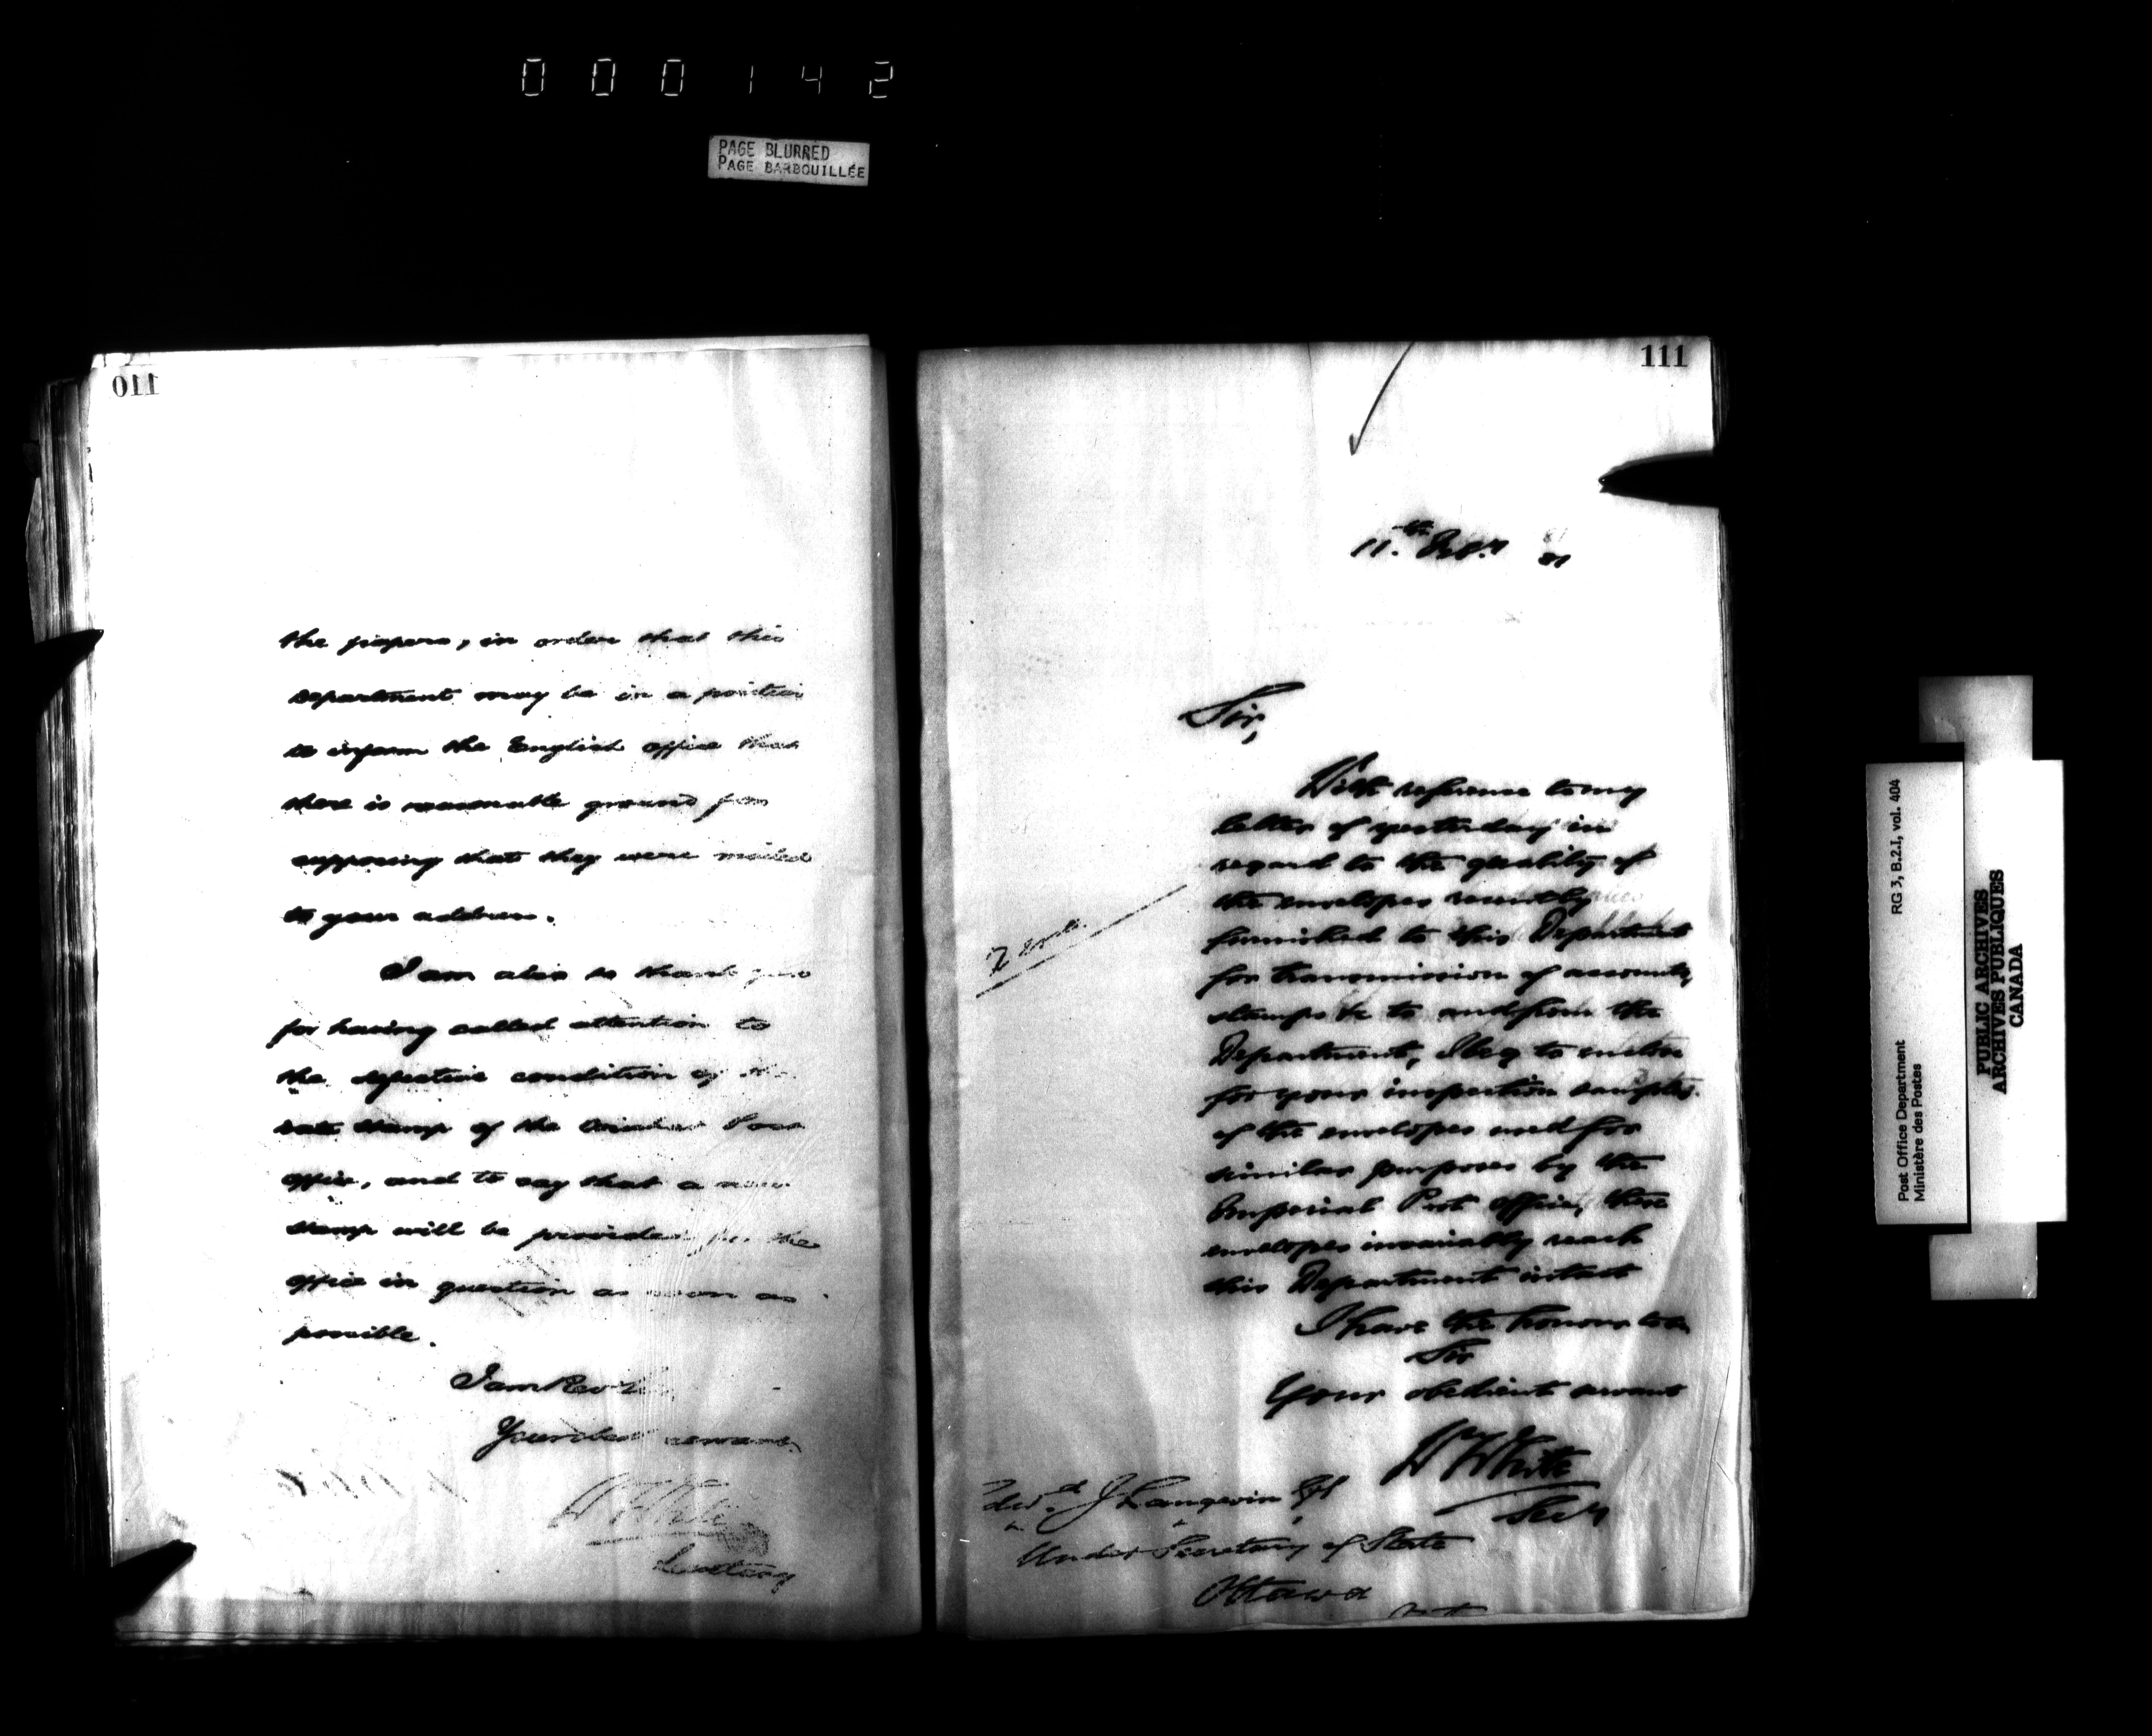 000142
PAGE BLURRED
PAGE BARBOUILLÉE
110
the papers, in order that this
department may be in a position
to inform the English office that
there is reasonable ground for
supposing that they were mailed
to your address.
I am also to thank you
for having called attention to
the defective condition of the
date stamp of the Post
office, and to say that a new
stamp will be provided for the
office in question as soon as
possible.
I am Rev Sir
Your obed servant
W White
Secretary
111
11th Feby 81
Sir,
With reference to my
letter of yesterday in
regard to the quality of
the envelopes recently
furnished to this Department
for transmission of accounts,
stamps &c to and from the
Department, I beg to enclose
for your inspection samples
of the envelopes used for
similar purposes by the
Imperial Post Office, these
envelopes invariably reach
this Department intact
I have the honour to be
Sir
Your obedient servant
W White
Secy
Edwd. J Langevin Esq
Under Secretary of State
Ottawa
Post Office Department
Ministère des Postes
RG 3, B.2.I, vol. 404
PUBLIC ARCHIVES
ARCHIVES PUBLIQUES
CANADA